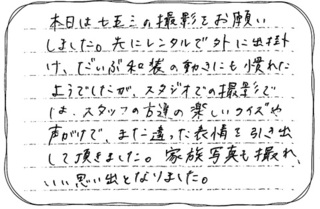 本日は七五三の撮影をお願い
しました。先にレンタルで外に出掛
け、だいぶ和装の動きにも慣れた
ようでしたが、スタジオでの撮影で
は、スタッフの方達の楽しいクイズや
声がけで、また違った表情を引き出
して頂きました。家族写真も撮れ、
いい思い出となりました。